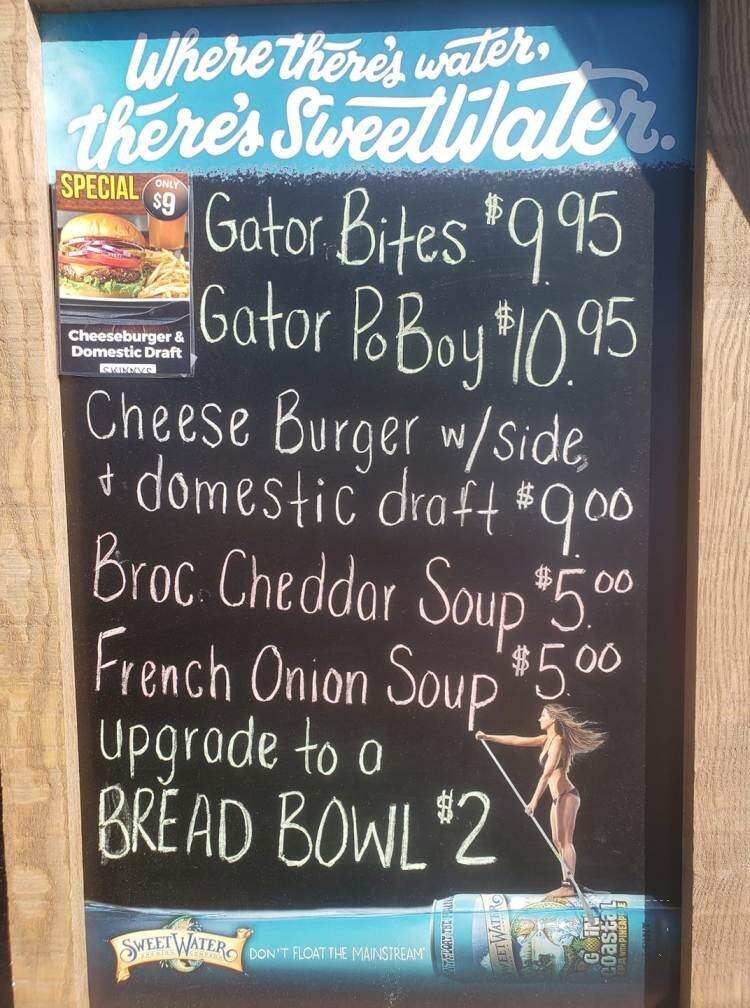 Where there's water,
there's SweetWater.
SPECIAL ONLY $9
Cheeseburger &
Domestic Draft
SKINNYS
Gator Bites $9.95
Gator Po Boy $10.95
Cheese Burger w/side
+ domestic draft $9.00
Broc. Cheddar Soup $5.00
French Onion Soup $5.00
upgrade to a
BREAD BOWL $2
SWEETWATER
BREWING COMPANY
DON'T FLOAT THE MAINSTREAM
SWEETWATER
GOIN'
Coastal
IPA WITH PINEAPPLE